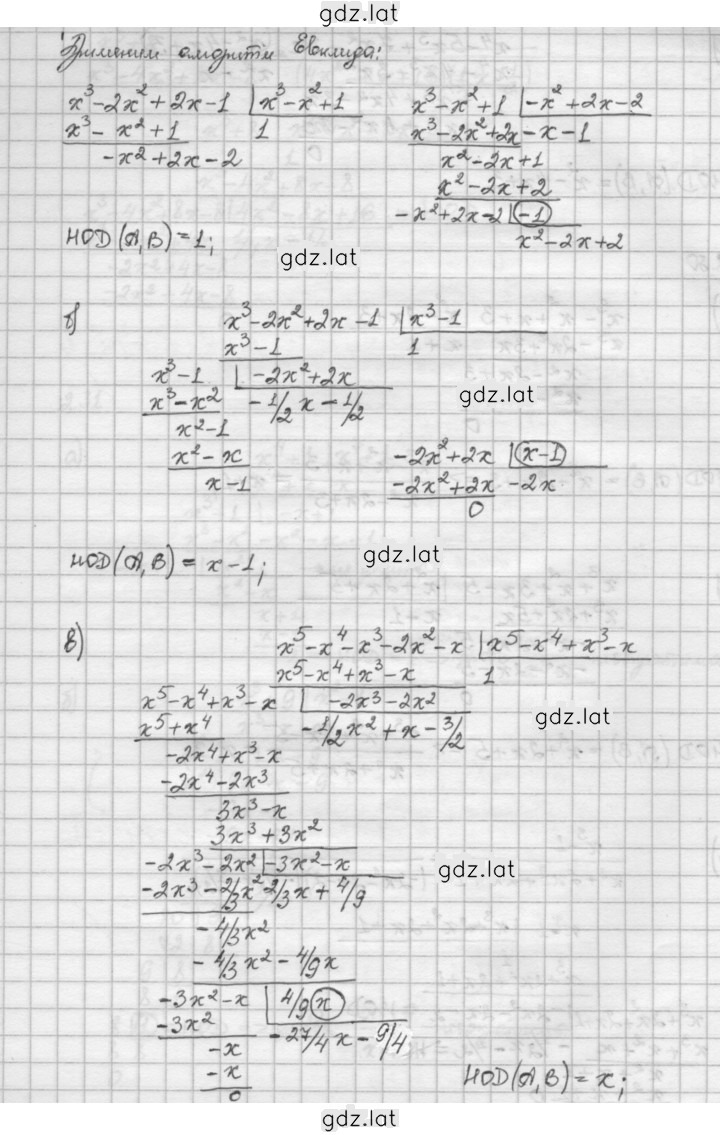 gdz.lat
Применим алгоритм Евклида:
x³-2x²+2x-1 | x³-x²+1
x³-x²+1 1
-x²+2x-2
x³-x²+1 | -x²+2x-2
x³-2x²+2x -x-1
x²-2x+1
x²-2x+2
-x²+2x-2 | -1
x²-2x+2
НОD(A,B)=1;
gdz.lat
б)
x³-2x²+2x-1 | x³-1
x³-1 1
x³-1 | -2x²+2x
x³-x² -1/2x-1/2
x²-1
x²-x
x-1
gdz.lat
-2x²+2x | x-1
-2x²+2x -2x
0
НОD(A,B)=x-1;
gdz.lat
в)
x⁵-x⁴-x³-2x²-x | x⁵-x⁴+x³-x
x⁵-x⁴+x³-x 1
x⁵-x⁴+x³-x | -2x³-2x²
x⁵+x⁴ -1/2x²+x-3/2
-2x⁴+x³-x
-2x⁴-2x³
3x³-x
3x³+3x²
gdz.lat
-2x³-2x² | -3x²-x
-2x³-2/3x² 2/3x+4/9
-4/3x²
-4/3x²-4/9x
gdz.lat
-3x²-x | 4/9x
-3x² -27/4x-9/4
-x
-x
0
НОD(A,B)=x;
gdz.lat